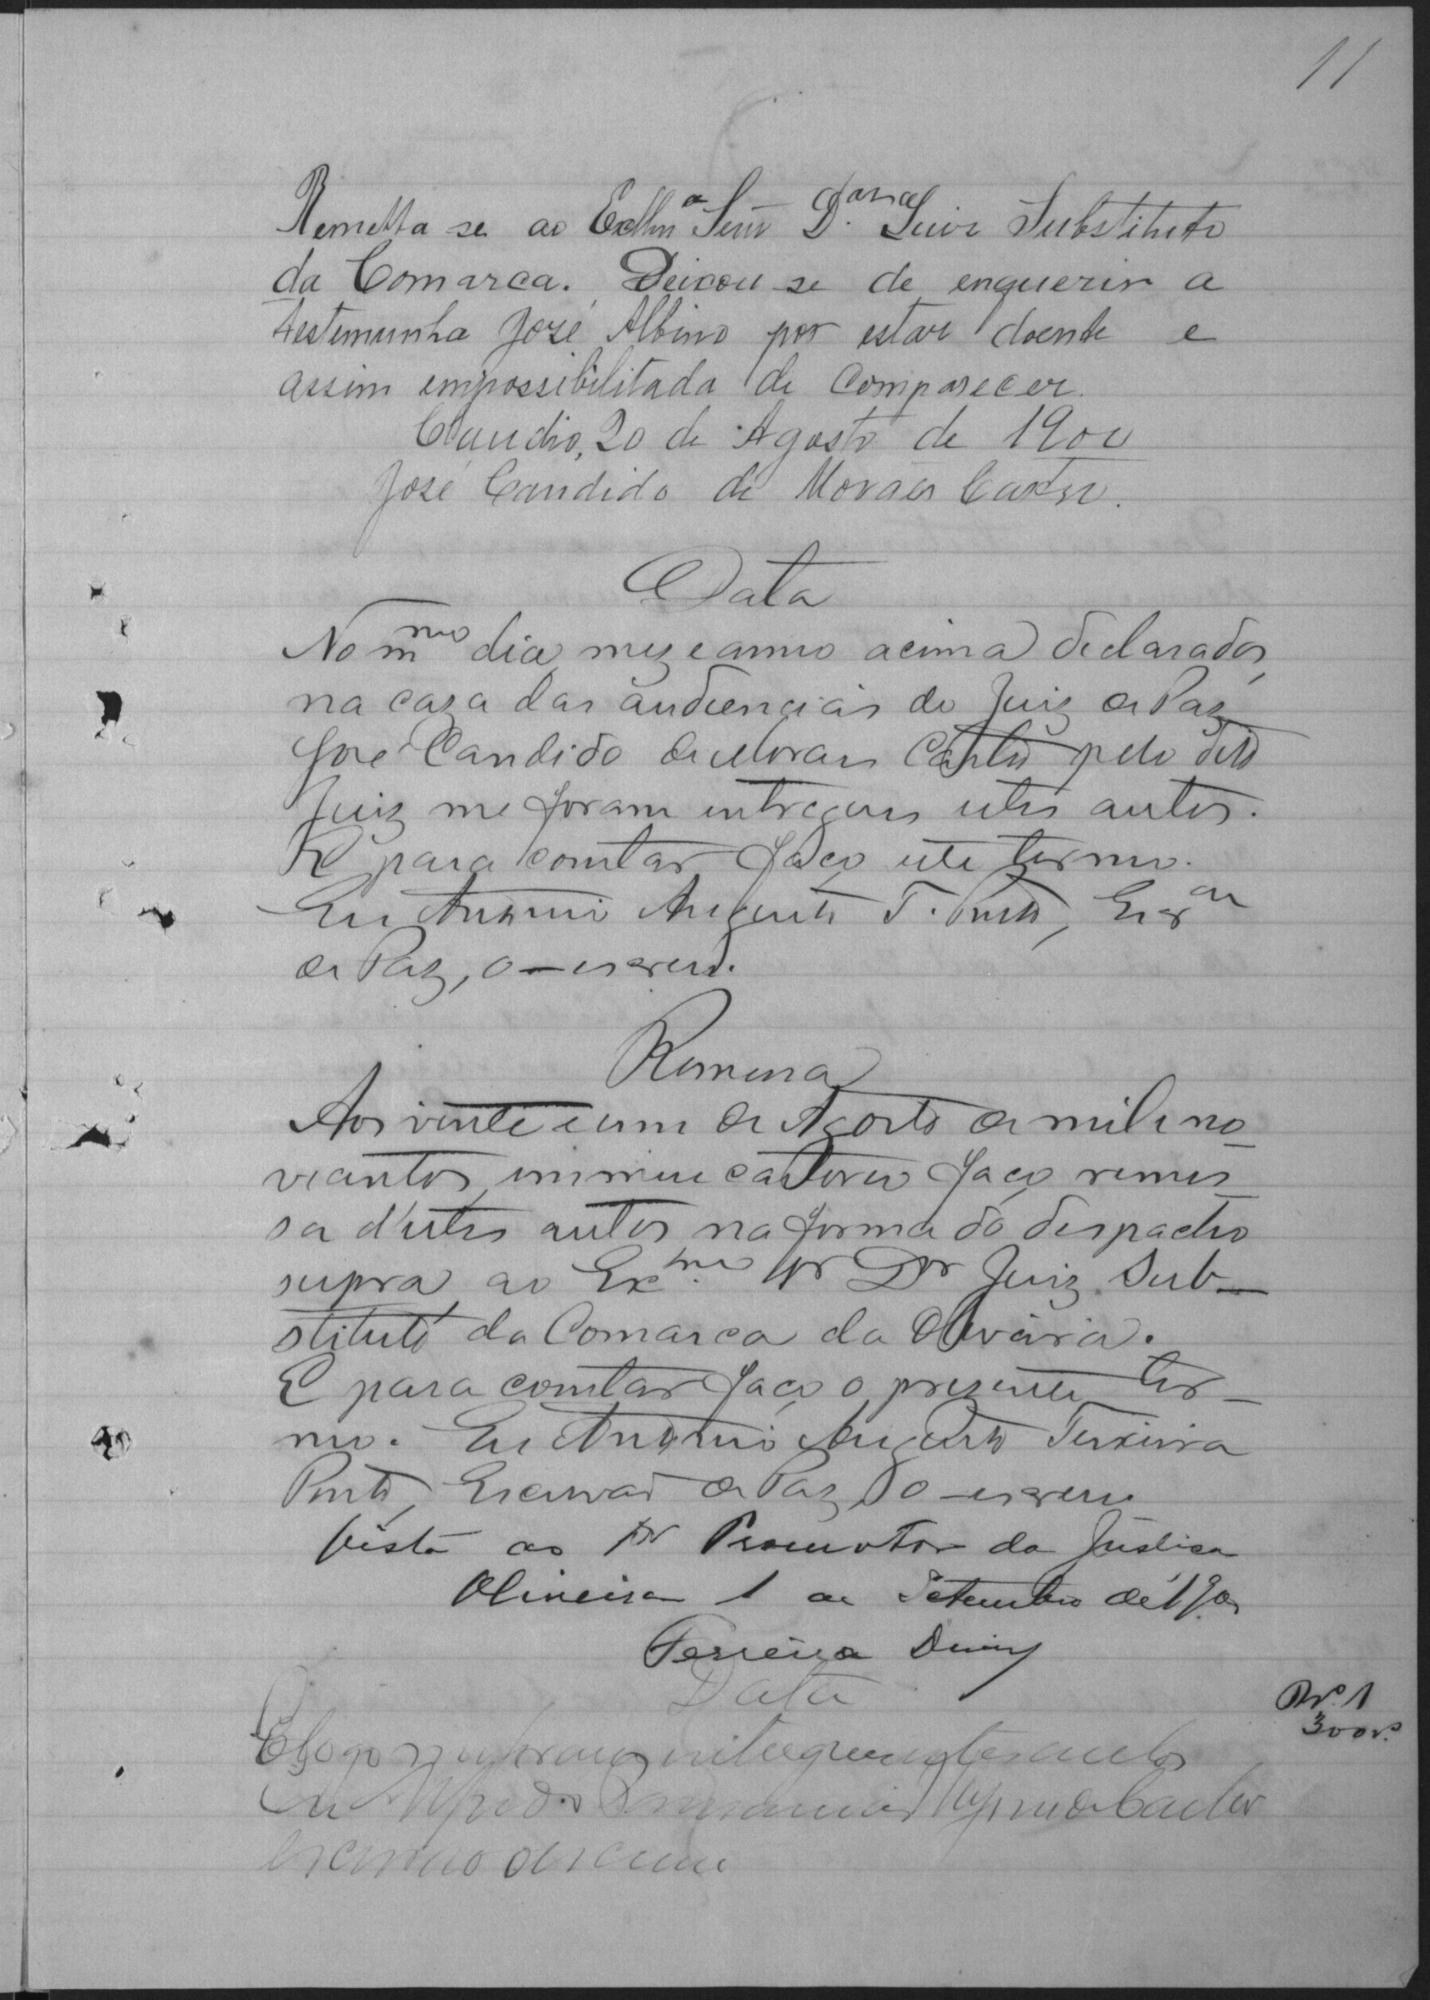 11
Remetta se ao Exllmo Senr Dr. Juiz Substituto
da Comarca. Deixou se de enquerir a
testemunha José Albino por estar doente e
assim empossibilitada de comparecer.
Claudio, 20 de Agosto de 1900
José Candido de Moraes Castro.
Data
No mmo dia, mez e anno acima declarados,
na caza das audiencias do Juiz de Paz
José Candido de Moraes Castro pelo dito
Juiz me foram entregues estes autos.
E para constar faço este termo.
Eu Antonio Augusto T. Porto, Escram
de Paz, o escrevi.
Remessa
Aos vinte e um de Agosto de mil e no-
vecentos, em meu cartorio faço remes-
sa d'estes autos na forma do despacho
supra ao Exmo. Sr Dr Juiz Sub-
stituto da Comarca da Oliveira.
E para constar faço o prezente ter-
mo. Eu Antonio Augusto Teixeira
Porto, Escrivão de Paz, o escrevi
Vista ao Dr Promotor da Justiça
Oliveira 1 de Setembro de 1900
Ferreira Diniz
Data
E logo me foram entregues estes autos
Eu Alfredo
escrivão o escrevi
No. 1
300rs.